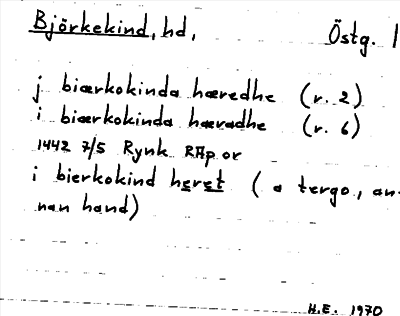 Björkekind, hd, Östg. |
j biærkokinda hæredhe (r. 2)
i biærkokinda hæradhe (r. 6)
1442 7/5 Rynk RAp or
i bierkokind heret (a tergo, an-
nan hand)
H.E. 1970